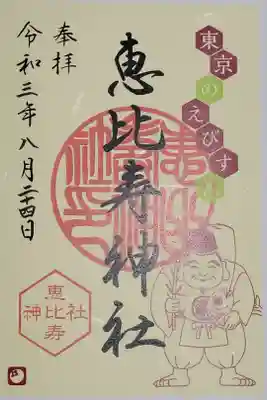 奉拝
令和三年八月二十四日
恵比寿神社
東京のえびす
恵
神比社
寿